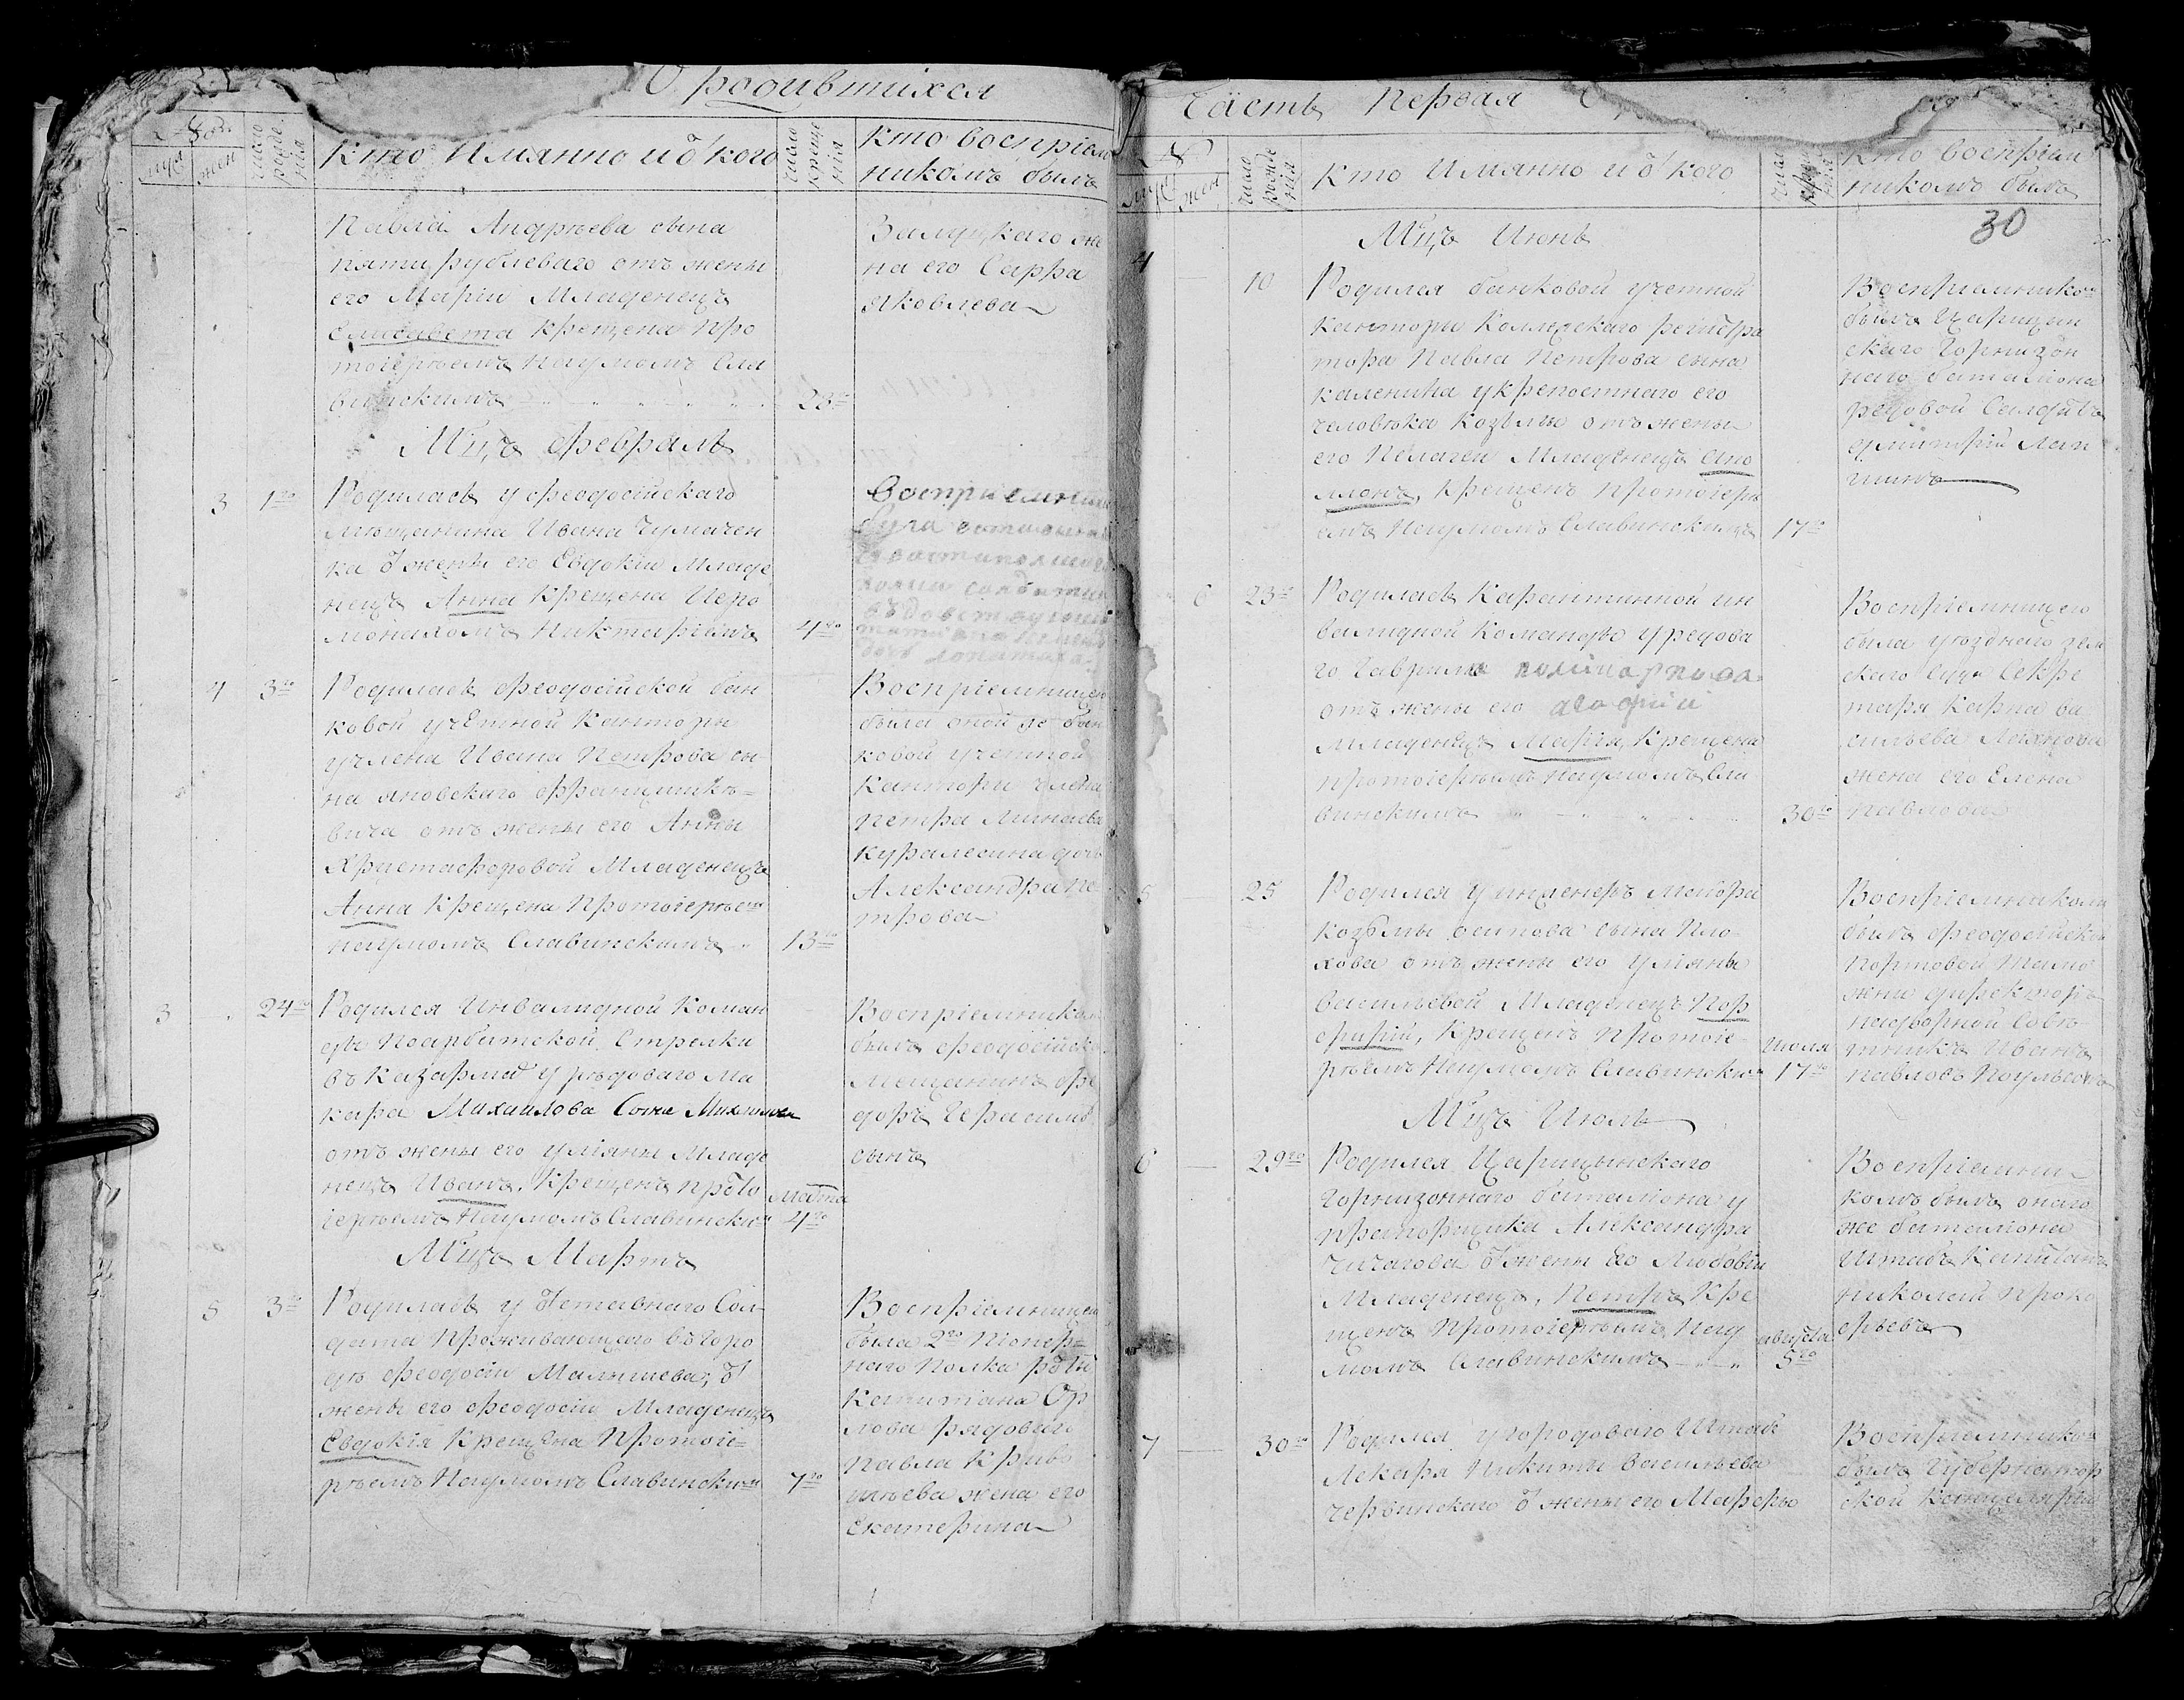 О родившихся
муж жен
число рожде нія
Кто Имянно и ѿ кого
число креще нія
кто воспріем
никомъ былъ
Павла Андрѣева сына
пяти рублеваго отъ жены
его Маріи Младенецъ
Елисавета крещена Про
тоіереемъ Наумомъ Сла
винскимъ
28
Залуцкаго же
на его Сарра
Яковлева
Мцъ Февраль
3 1го
Родилась у феодосійскаго
мѣщанина Ивана Чумачен
ка ѿ жены его Евдокіи Младе
нецъ Анна крещена Іеро
монахомъ Никтаріемъ
4го
4 3го
Родилась феодосійской бан
ковой учетной Канторы
у члена Ивана Петрова сы
на Яновскаго Францишке=
вича отъ жены его Анны
Христафоровой Младенецъ
Анна крещена Протоіереемъ
Наумомъ Славинскимъ
13го
Воспріемницею
была оной же бан
ковой учетной
Канторы члена
Петра Минаева
куралесина дочь
Александра Пе
трова
3 24го
Родился Инвалидной Коман
ды Поарбатской Стрелки
въ казармѣ у рядоваго Ма
кара Михаилова Сына
отъ жены его Уліяны Младе
нецъ Иванъ, Крещенъ прото
іереемъ Наумомъ Славинскимъ
Марта
4го
Воспріемником
былъ феодосійск
Мещанинъ Фе
доръ Герасимъ
сынъ
Мцъ Мартъ
5 3го
Родилась у ѿставнаго Сол
дата проживающаго въ горо
дѣ феодосіи Малышева, ѿ
жены его феодосіи Младенецъ
Евдокія Крещена Протоіе=
реемъ Наумомъ Славинскимъ
7го
Воспріемницею
была 2го Піонер=
наго Полка роты
Капитана Ор
лова рядоваго
Павла Криво
шѣева жена его
Екатерина
Часть Первая
муж жен
число рожде нія
кто Имянно и ѿ кого
кто воспріем
никомъ былъ
30
Мцъ Июнь
4
10
Родился банковой учетной
канторы Коллежскаго регистра
тора Павла Петрова сына
каленика у крепостнаго его
человѣка Козьмы отъ жены
его Пелагеи Младенецъ Апо
ллонъ, Крещенъ Протоіере
емъ Наумомъ Славинскимъ
17го
Воспріемником
былъ Царицын
скаго Горнизон
наго баталіона
редовой Солдатъ
Дмитрій Лап
шинъ
6 23го
Родилась Карантинной ин
валидной Команды у редова
го Гаврила
отъ жены его
Младенецъ Марія, Крещена
протоіереемъ Наумомъ Сла
винскимъ
30го
Воспріемницею
была уѣзднаго зем
скаго Суда Секре
таря Карпа Ва
сильева
жена его Елена
Павлова
5
25
Родился у инженеръ Маіора
Козьмы осипова сына Пло
хова отъ жены его Уліяны
Васильевой Младенецъ Пор
фирій, Крещенъ Протоіе
реемъ Наумомъ Славинским
Июля
17го
Воспріемником
былъ феодосійской
Портовой Тамо
жни директоръ
надворной Совѣ
тникъ Иванъ
Павловъ
Мцъ Июль
6
29го
Родился Царицынскаго
Горнизоннаго баталіона у
прапорщика Александра
Чичагова ѿ жены Его Любови
Младенецъ, Петръ Кре
щенъ Протоіереемъ Нау
момъ Славинскимъ
августа
5го
Воспріемни
комъ былъ онаго
же баталіона
Штабъ Капитанъ
Николай Проко
фьевъ
7
30го
Родился у городоваго Штабъ
Лекаря Никиты Васильева
Червинскаго ѿ жены его Марфы
Воспріемником
былъ Губернатор
ской Канцеляріи